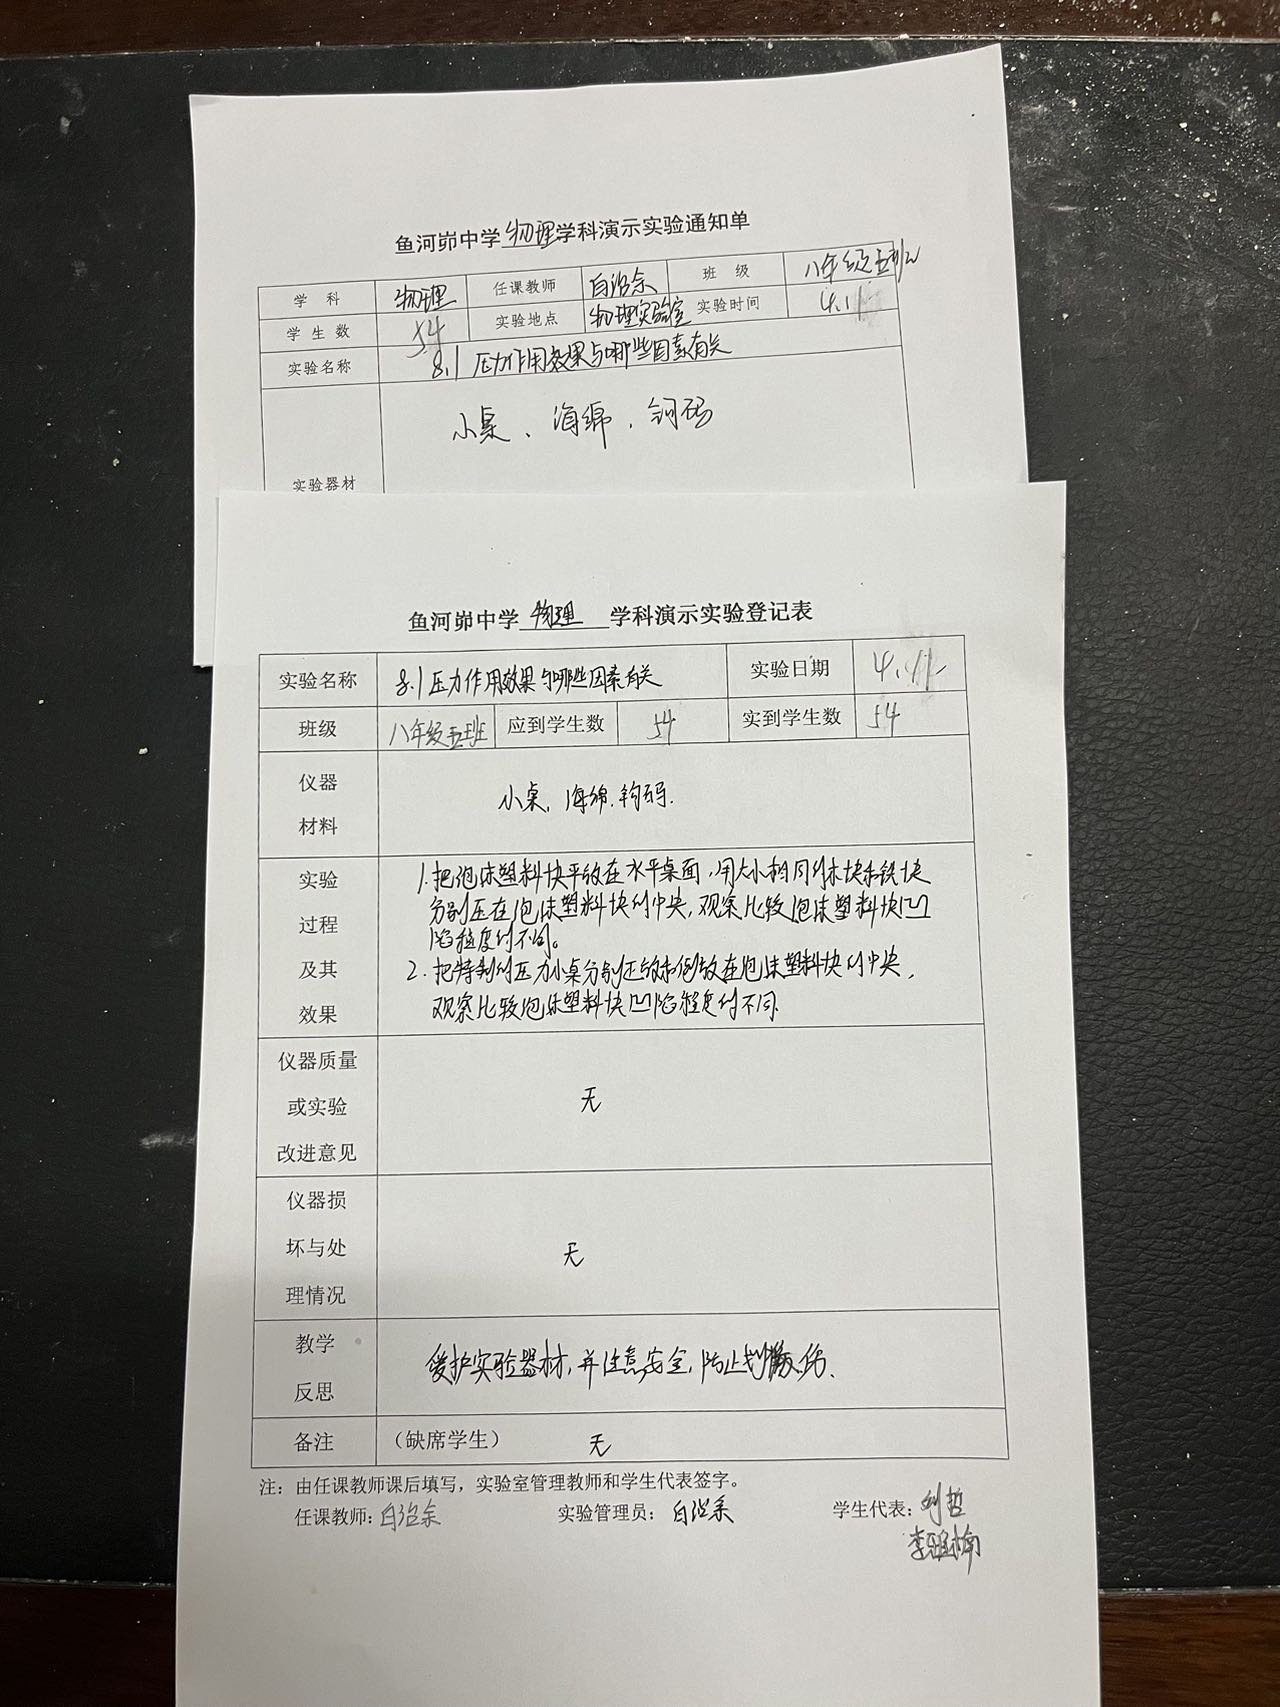 鱼河峁中学物理学科演示实验通知单
学 科 物理 任课教师 班 级 八年级五班
学 生 数 54 实验地点 物理实验室 实验时间
实验名称 8.1 压力作用效果与哪些因素有关
小桌、海绵、钩码
实验器材
鱼河峁中学 物理 学科演示实验登记表
实验名称 8.1 压力作用效果与哪些因素有关 实验日期
班级 八年级五班 应到学生数 54 实到学生数 54
仪器
小桌、海绵、钩码.
材料
实验 1.把泡沫塑料块平放在水平桌面,用大小相同的木块和铁块
分别压在泡沫塑料块的中央,观察比较泡沫塑料块凹
过程
陷程度的不同。
及其 2.把特制的压力小桌分别正放和倒放在泡沫塑料块的中央,
效果 观察比较泡沫塑料块凹陷程度的不同.
仪器质量
或实验 无
改进意见
仪器损
坏与处 无
理情况
教学
爱护实验器材,并注意安全,防止划伤.
反思
备注 (缺席学生) 无
注:由任课教师课后填写,实验室管理教师和学生代表签字。
任课教师: 实验管理员: 学生代表:刘哲